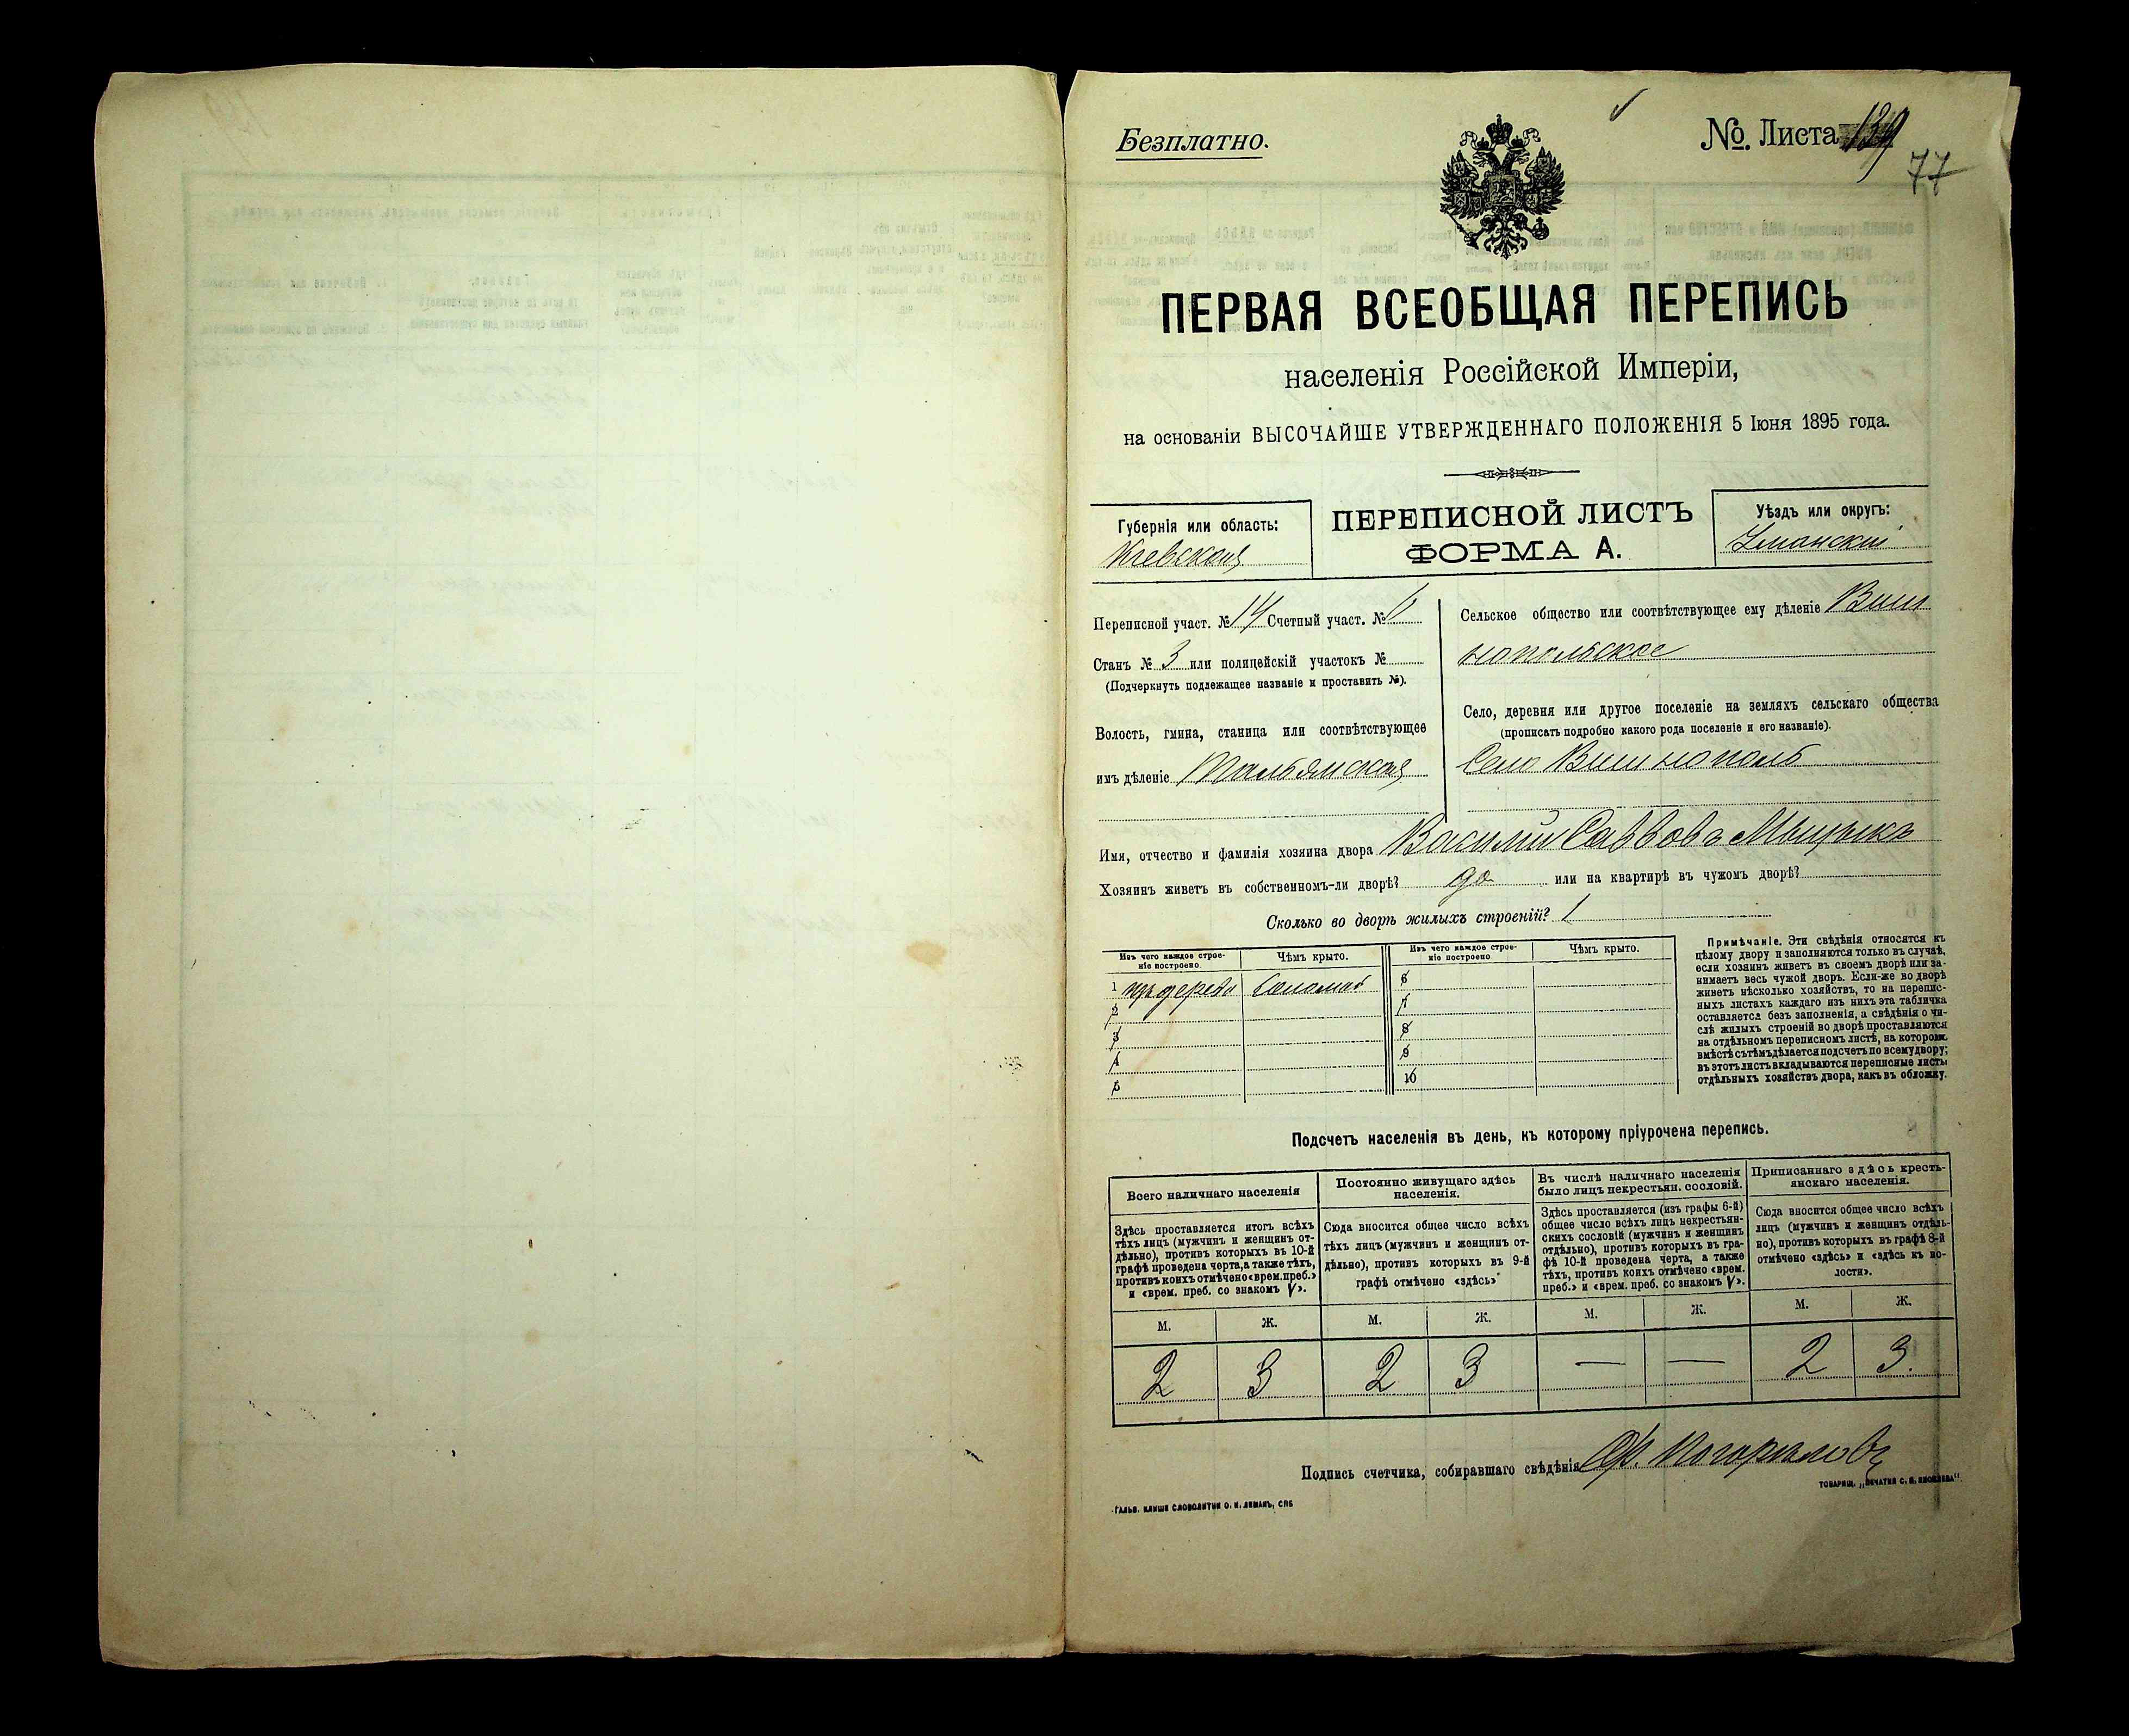 Безплатно.
№. Листа 139
77
ПЕРВАЯ ВСЕОБЩАЯ ПЕРЕПИСЬ
населенія Россійской Имперіи,
на основаніи ВЫСОЧАЙШЕ УТВЕРЖДЕННАГО ПОЛОЖЕНІЯ 5 Іюня 1895 года.
Губернія или область:
Кіевская
ПЕРЕПИСНОЙ ЛИСТЪ
ФОРМА А.
Уѣздъ или округъ:
Уманскій
Переписной участ. № 14 Счетный участ. № 1
Станъ № 3 или полицейскій участокъ №
(Подчеркнуть подлежащее названіе и проставить №).
Волость, гмина, станица или соотвѣтствующее
имъ дѣленіе Тальянская
Сельское общество или соотвѣтствующее ему дѣленіе Виш
нопольское
Село, деревня или другое поселеніе на земляхъ сельскаго общества
(прописать подробно какого рода поселеніе и его названіе).
Село Вишнополь
Имя, отчество и фамилія хозяина двора Василій Саввовъ
Хозяинъ живетъ въ собственномъ-ли дворѣ? да или на квартирѣ въ чужомъ дворѣ?
Сколько во дворѣ жилыхъ строеній? 1
Изъ чего каждое строе-
ніе построено.
Чѣмъ крыто.
Изъ чего каждое строе-
ніе построено
Чѣмъ крыто.
1 изъ дерева Соломой 6
2 7
3 8
4 9
5 10
Примѣчаніе. Эти свѣдѣнія относятся къ
цѣлому двору и заполняются только въ случаѣ,
если хозяинъ живетъ въ своемъ дворѣ или за-
нимаетъ весь чужой дворъ. Если-же во дворѣ
живетъ нѣсколько хозяйствъ, то на перепис-
ныхъ листахъ каждаго изъ нихъ эта табличка
оставляется безъ заполненія, а свѣдѣнія о чи-
слѣ жилыхъ строеній во дворѣ проставляются
на отдѣльномъ переписномъ листѣ, на которомъ
вмѣстѣ съ тѣмъ дѣлается подсчетъ по всему двору;
въ этотъ листъ вкладываются переписные листы
отдѣльныхъ хозяйствъ двора, какъ въ обложку.
Подсчетъ населенія въ день, къ которому пріурочена перепись.
Всего наличнаго населенія
Здѣсь проставляется итогъ всѣхъ
тѣхъ лицъ (мужчинъ и женщинъ от-
дѣльно), противъ которыхъ въ 10-й
графѣ проведена черта, а также тѣхъ,
противъ коихъ отмѣчено «врем. преб.»
и «врем. преб. со знакомъ V».
Постоянно живущаго здѣсь
населенія.
Сюда вносится общее число всѣхъ
тѣхъ лицъ (мужчинъ и женщинъ от-
дѣльно), противъ которыхъ въ 9-й
графѣ отмѣчено «здѣсь»
Въ числѣ наличнаго населенія
было лицъ некрестьян. сословій.
Здѣсь проставляется (изъ графы 6-й)
общее число всѣхъ лицъ некрестьян-
скихъ сословій (мужчинъ и женщинъ
отдѣльно), противъ которыхъ въ гра-
фѣ 10-й проведена черта, а также
тѣхъ, противъ коихъ отмѣчено «врем.
преб.» и «врем. преб. со знакомъ V».
Приписаннаго здѣсь кресть-
янскаго населенія.
Сюда вносится общее число всѣхъ
лицъ (мужчинъ и женщинъ отдѣль-
но), противъ которыхъ въ графѣ 8-й
отмѣчено «здѣсь» и «здѣсь къ во-
лости».
М. Ж. М. Ж. М. Ж. М. Ж.
2 3 2 3 — — 2 3.
Подпись счетчика, собиравшаго свѣдѣнія
ГАЛЬВ. КЛИШЕ СЛОВОЛИТНИ О. И. ЛЕМАНЪ, СПБ
ТОВАРИЩ. „ПЕЧАТНЯ С. П. ЯКОВЛЕВА“.